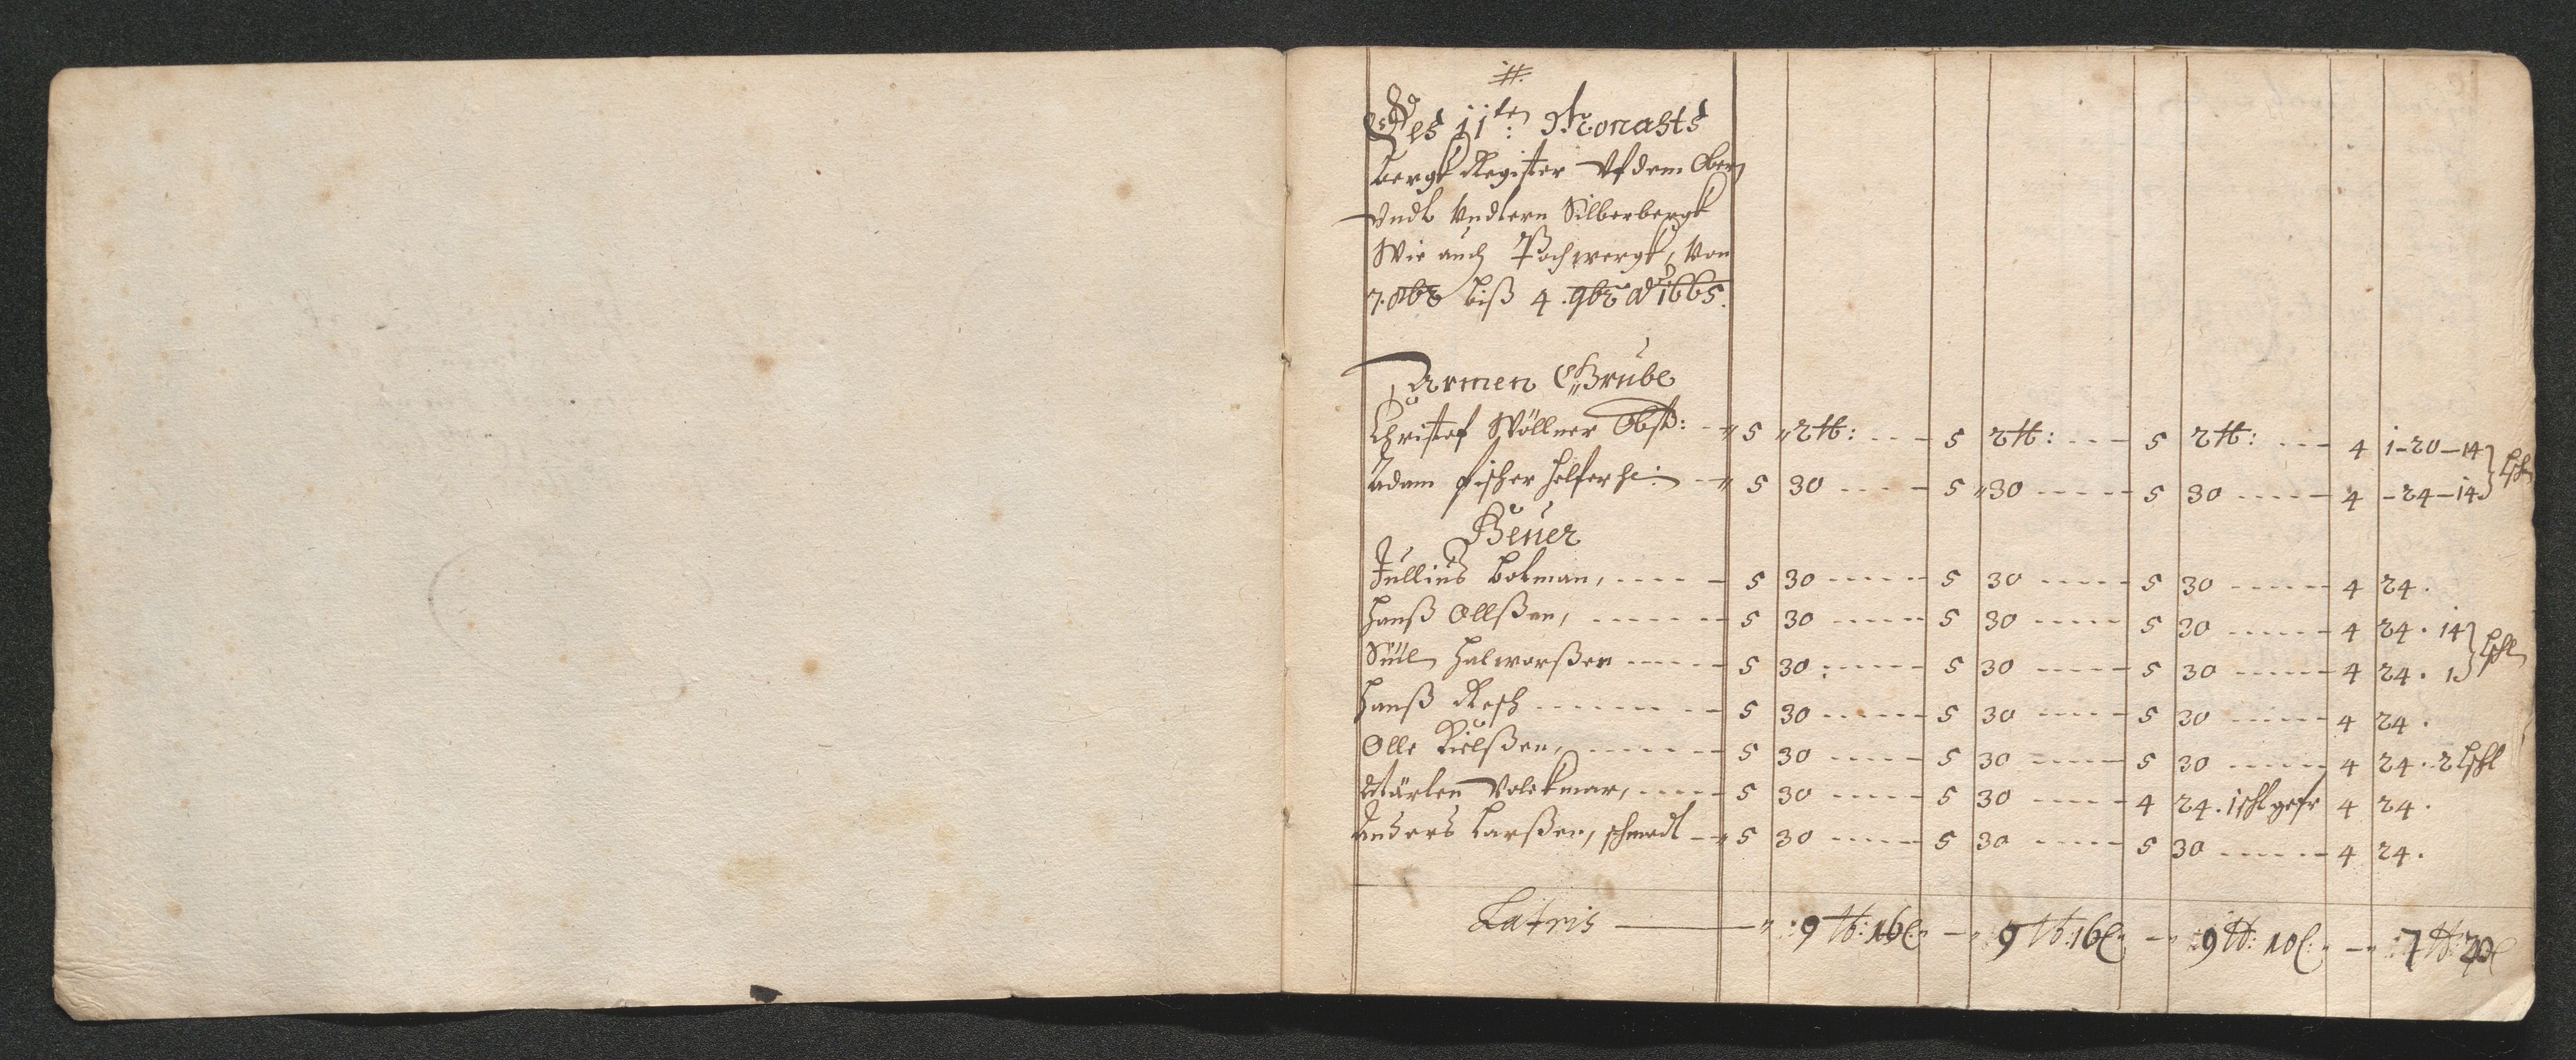 #.
Des 11ten: Monahts
bergk Register Vf dem Ober
Vndt Vndtern Silberbergk
Wie auch Pochwergk, Von
7. 8br biß 4. 9br Ao 1665.
Armen Grube
Christof Wöllner Obst: -- 5 2 tt: --- 5 2 tt: --- 5 2 tt: --- 4 1-20-14
Adam fischer helfer -- 5 30 --- 5 30 --- 5 30 --- 4 -24-14
Heuer
Jullius Bokman, --- 5 30 --- 5 30 --- 5 30 --- 4 24.
Hanß Ollßen, --- 5 30 --- 5 30 --- 5 30 --- 4 24. 14
Halworßen --- 5 30 --- 5 30 --- 5 30 --- 4 24. 1
Hanß Resch --- 5 30 --- 5 30 --- 5 30 --- 4 24.
Olle Kielßen, --- 5 30 --- 5 30 --- 5 30 --- 4 24. 2 schl
Märten Volckmar, --- 5 30 --- 5 30 --- 4 24. 1 schl 4 24.
Anders Larßen, schmedt -- 5 30 --- 5 30 --- 5 30 --- 4 24.
Latris --- 9 tt: 16 ß -- 9 tt: 16 ß -- 9 tt: 10 ß: -- 7 tt: 20 ß